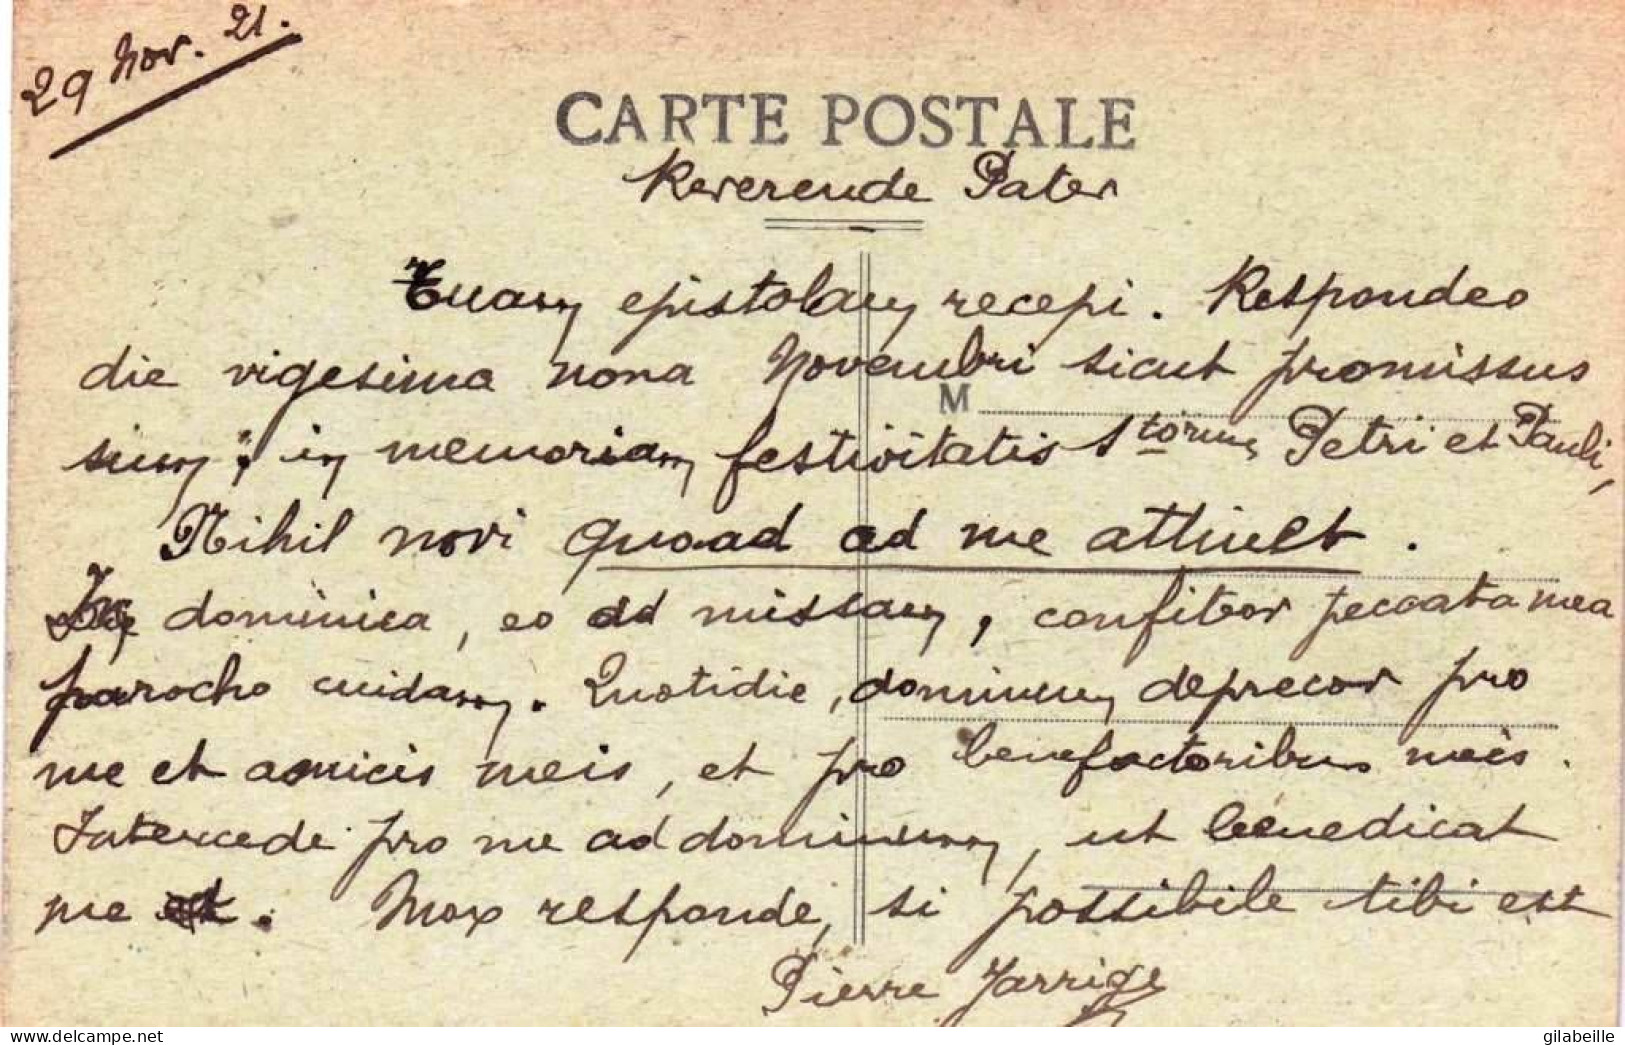 29 Nov. 21.
CARTE POSTALE
Reverende Pater
Tuam epistolam recepi. Respondeo
die vigesima nona Novembri sicut promissus
M
sum, in memoriam festivitatis Storum Petri et Pauli,
Nihil novi quoad ad me attinet.
In dominica, eo ad missam, confiteor peccata mea
parocho cuidam. Quotidie, dominum deprecor pro
me et amicis meis, et pro benefactoribus meis.
Intercede pro me ad dominum, ut benedicat
me. Mox responde, si possibile tibi est
Pierre Jarrige
delcampe.net
gilabeille